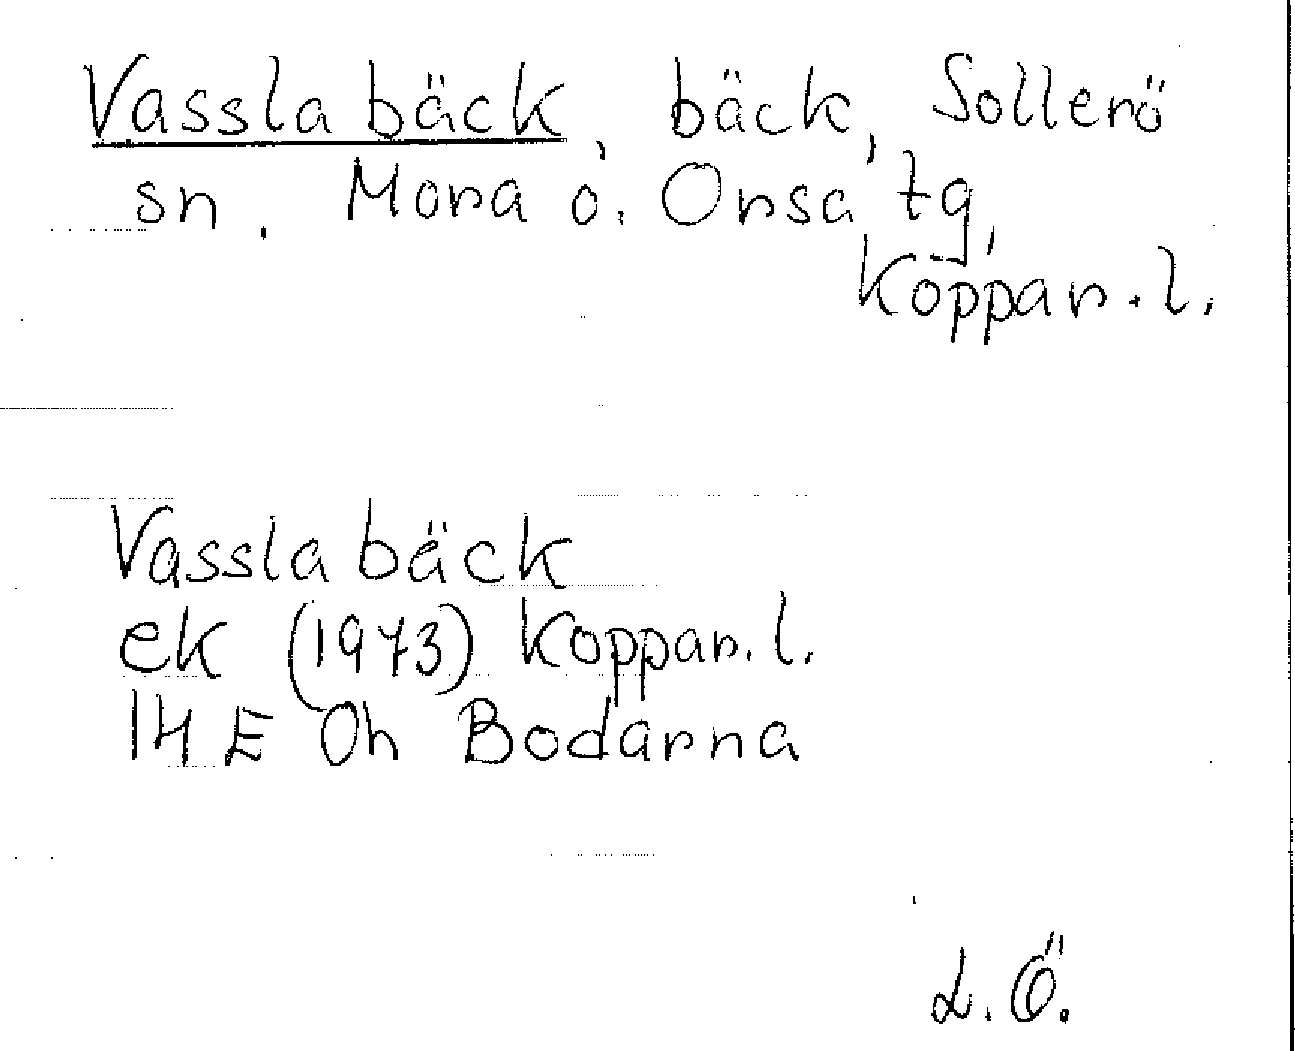 Vasslabäck, bäck, Sollerö
sn. Mora o. Orsa tg,
Koppar.l.
Vasslabäck
ek (1973) Koppar.l.
14 E 0h Bodarna
L.Ö.